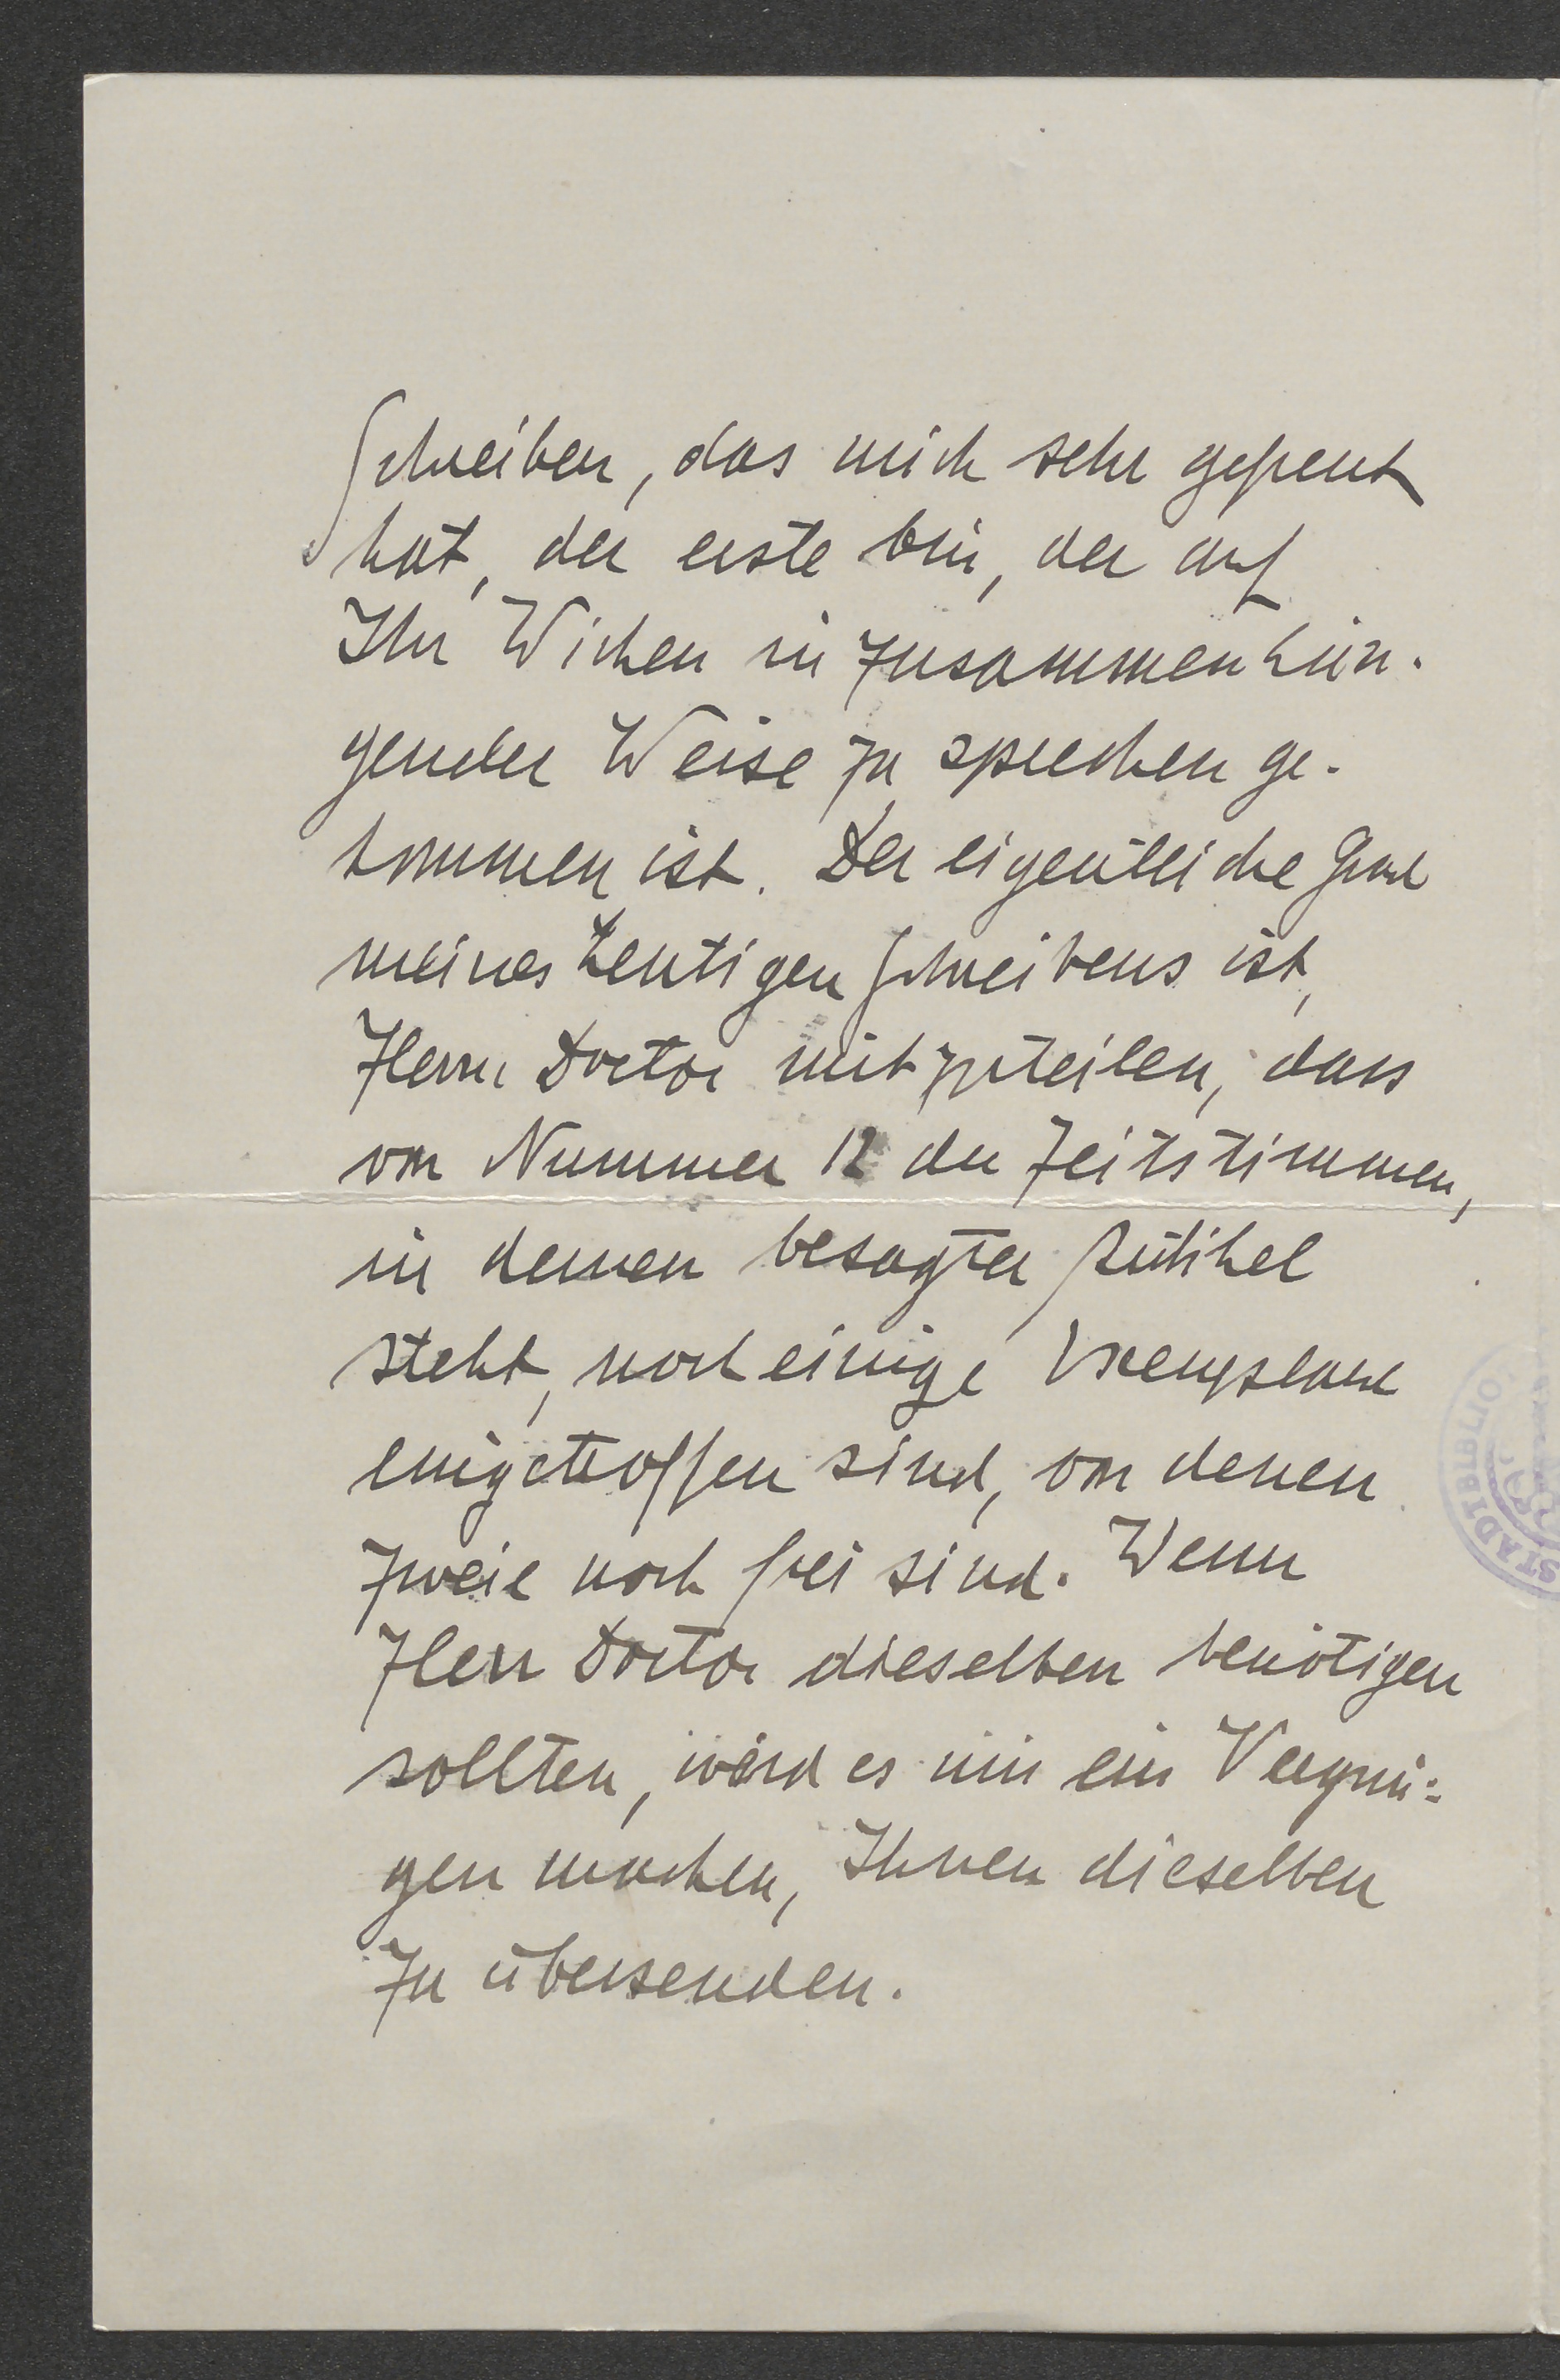 Schreiben, das mich sehr gefreut
hat, der erste bin, der auf
Ihr Wirken in zusammenhän-
gender Weise zu sprechen ge-
kommen ist. Der eigentliche Grund
meines heutigen Schreibens ist,
Herrn Doctor mitzuteilen, dass
von Nummer 12 der Zeitstimmen,
in denen besagter Artikel
steht, noch einige Exemplare
eingetroffen sind, von denen
zweie noch frei sind. Wenn
Herr Doctor dieselben benötigen
sollten, wird es mir ein Vergnü-
gen machen, Ihnen dieselben
zu übersenden.
STADTBIBLIO